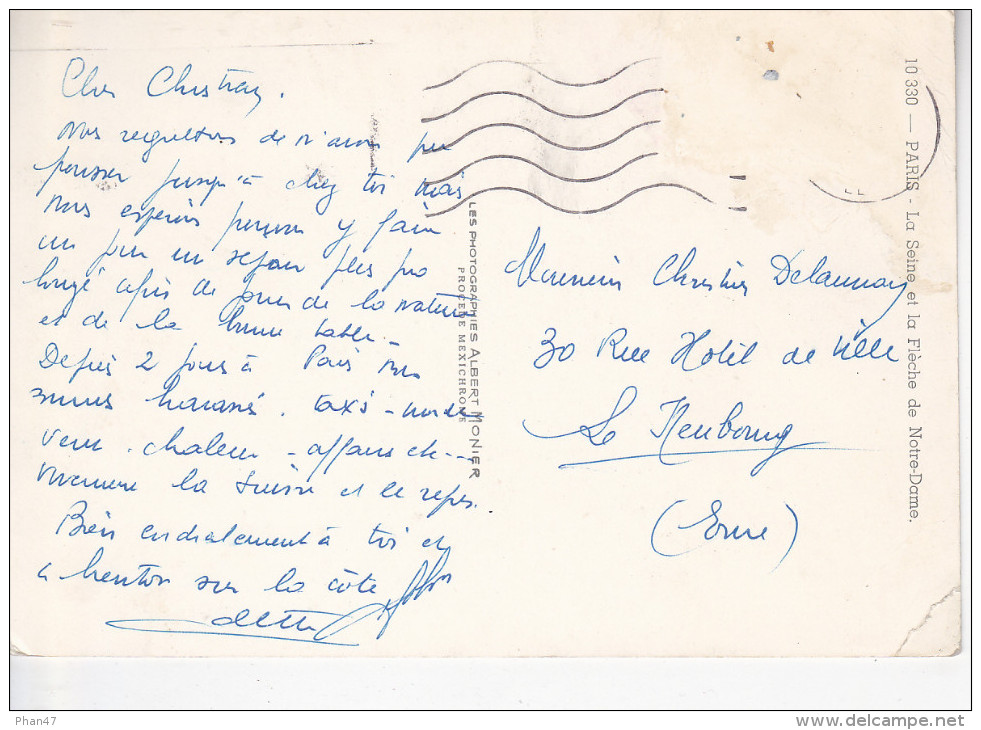 Cher Christian.
Nous regrettons de n'avoir pu
pousser jusqu'à chez toi mais
nous espérons pouvoir y faire
un jour un séjour plus pro
longé afin de jouir de la nature
et de la bonne table.
Depuis 2 jours à Paris nous
sommes harassés. taxis -
chaleur - affaires etc - -
Vivement la Suisse et le repos.
Bien cordialement à toi et
à bientôt sur la côte
Odette
LES PHOTOGRAPHIES ALBERT MONIER
PROCÉDÉ MEXICHROME
Monsieur Christian Delaunay
30 Rue Hotel de Ville
Le Neubourg
(Eure)
10 330 — PARIS - La Seine et la Flèche de Notre-Dame.
Phan47
delcampe.net